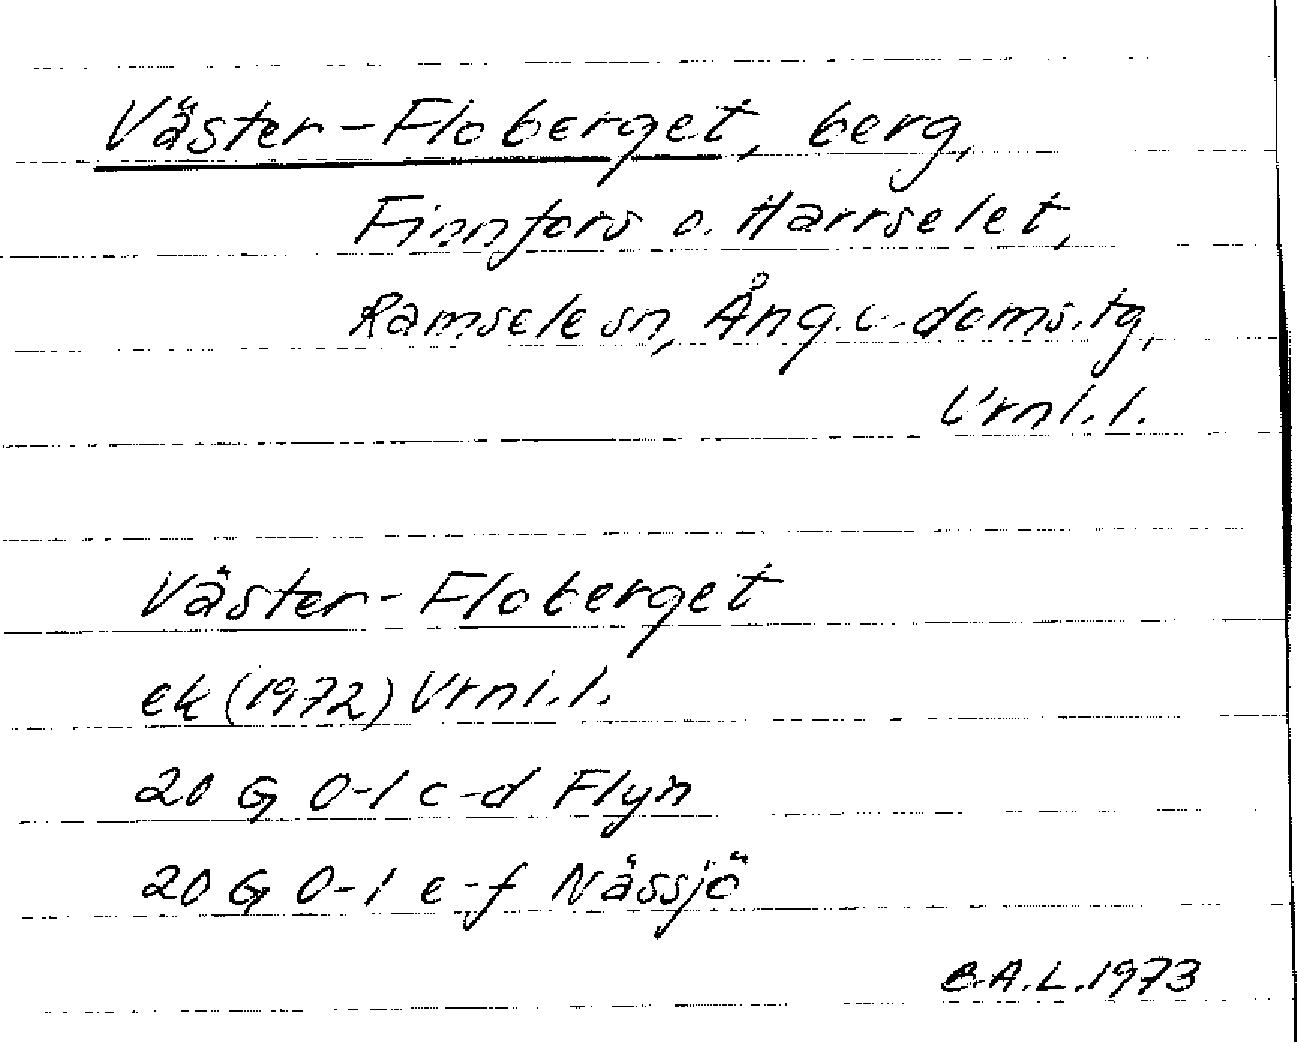 Väster-Floberget, berg,
Finnfors o. Harrselet,
Ramsele sn, Ång.v.doms.tg,
Vrnl.l.
Väster-Floberget
ek (1972) Vrnl.l.
20 G 0-1 c-d Flyn
20 G 0-1 e-f Nässjö
B.A.L.1973